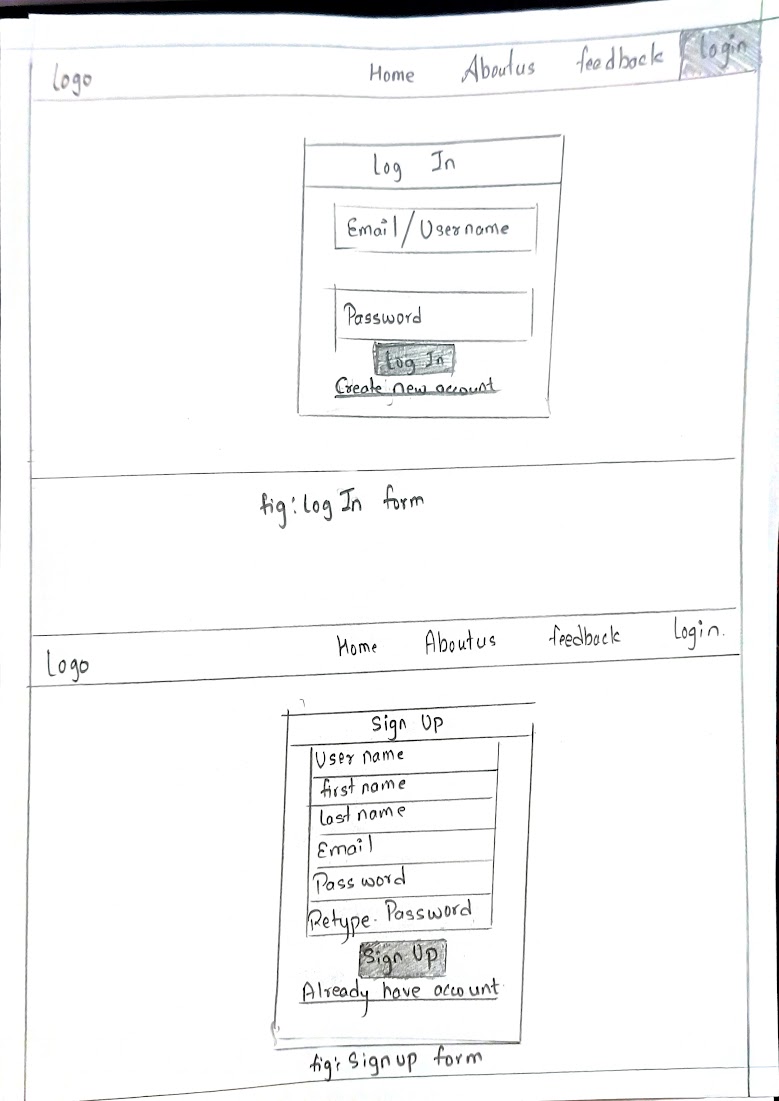 Logo Home Aboutus feedback Login
Log In
Email/Username
Password
Log In
Create new account
fig: Log In form
Logo Home Aboutus feedback Login.
Sign Up
User name
first name
Last name
Email
Password
Retype Password
Sign Up
Already have account
fig: Sign up form